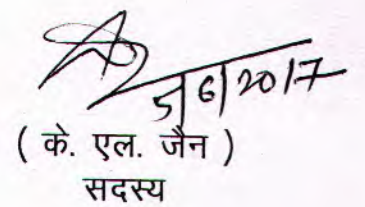 5|6|2017
( के. एल. जैन )
सदस्य